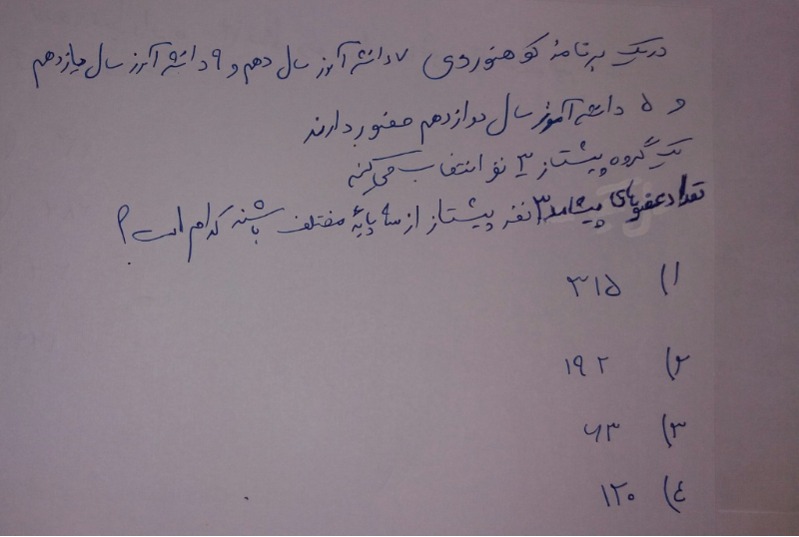 در یک برنامهٔ کوهنوردی ۷ دانش آموز سال دهم و ۹ دانش آموز سال یازدهم
و ۵ دانش آموز سال دوازدهم حضور دارند
یک گروه پیشتاز ۳ نفر انتخاب می کنیم
تعداد عضوهای پیشامد ۳ نفر پیشتاز از سه پایهٔ مختلف باشند کدام است؟
۱) ۳۱۵
۲) ۱۹۲
۳) ۶۳
۴) ۱۲۰